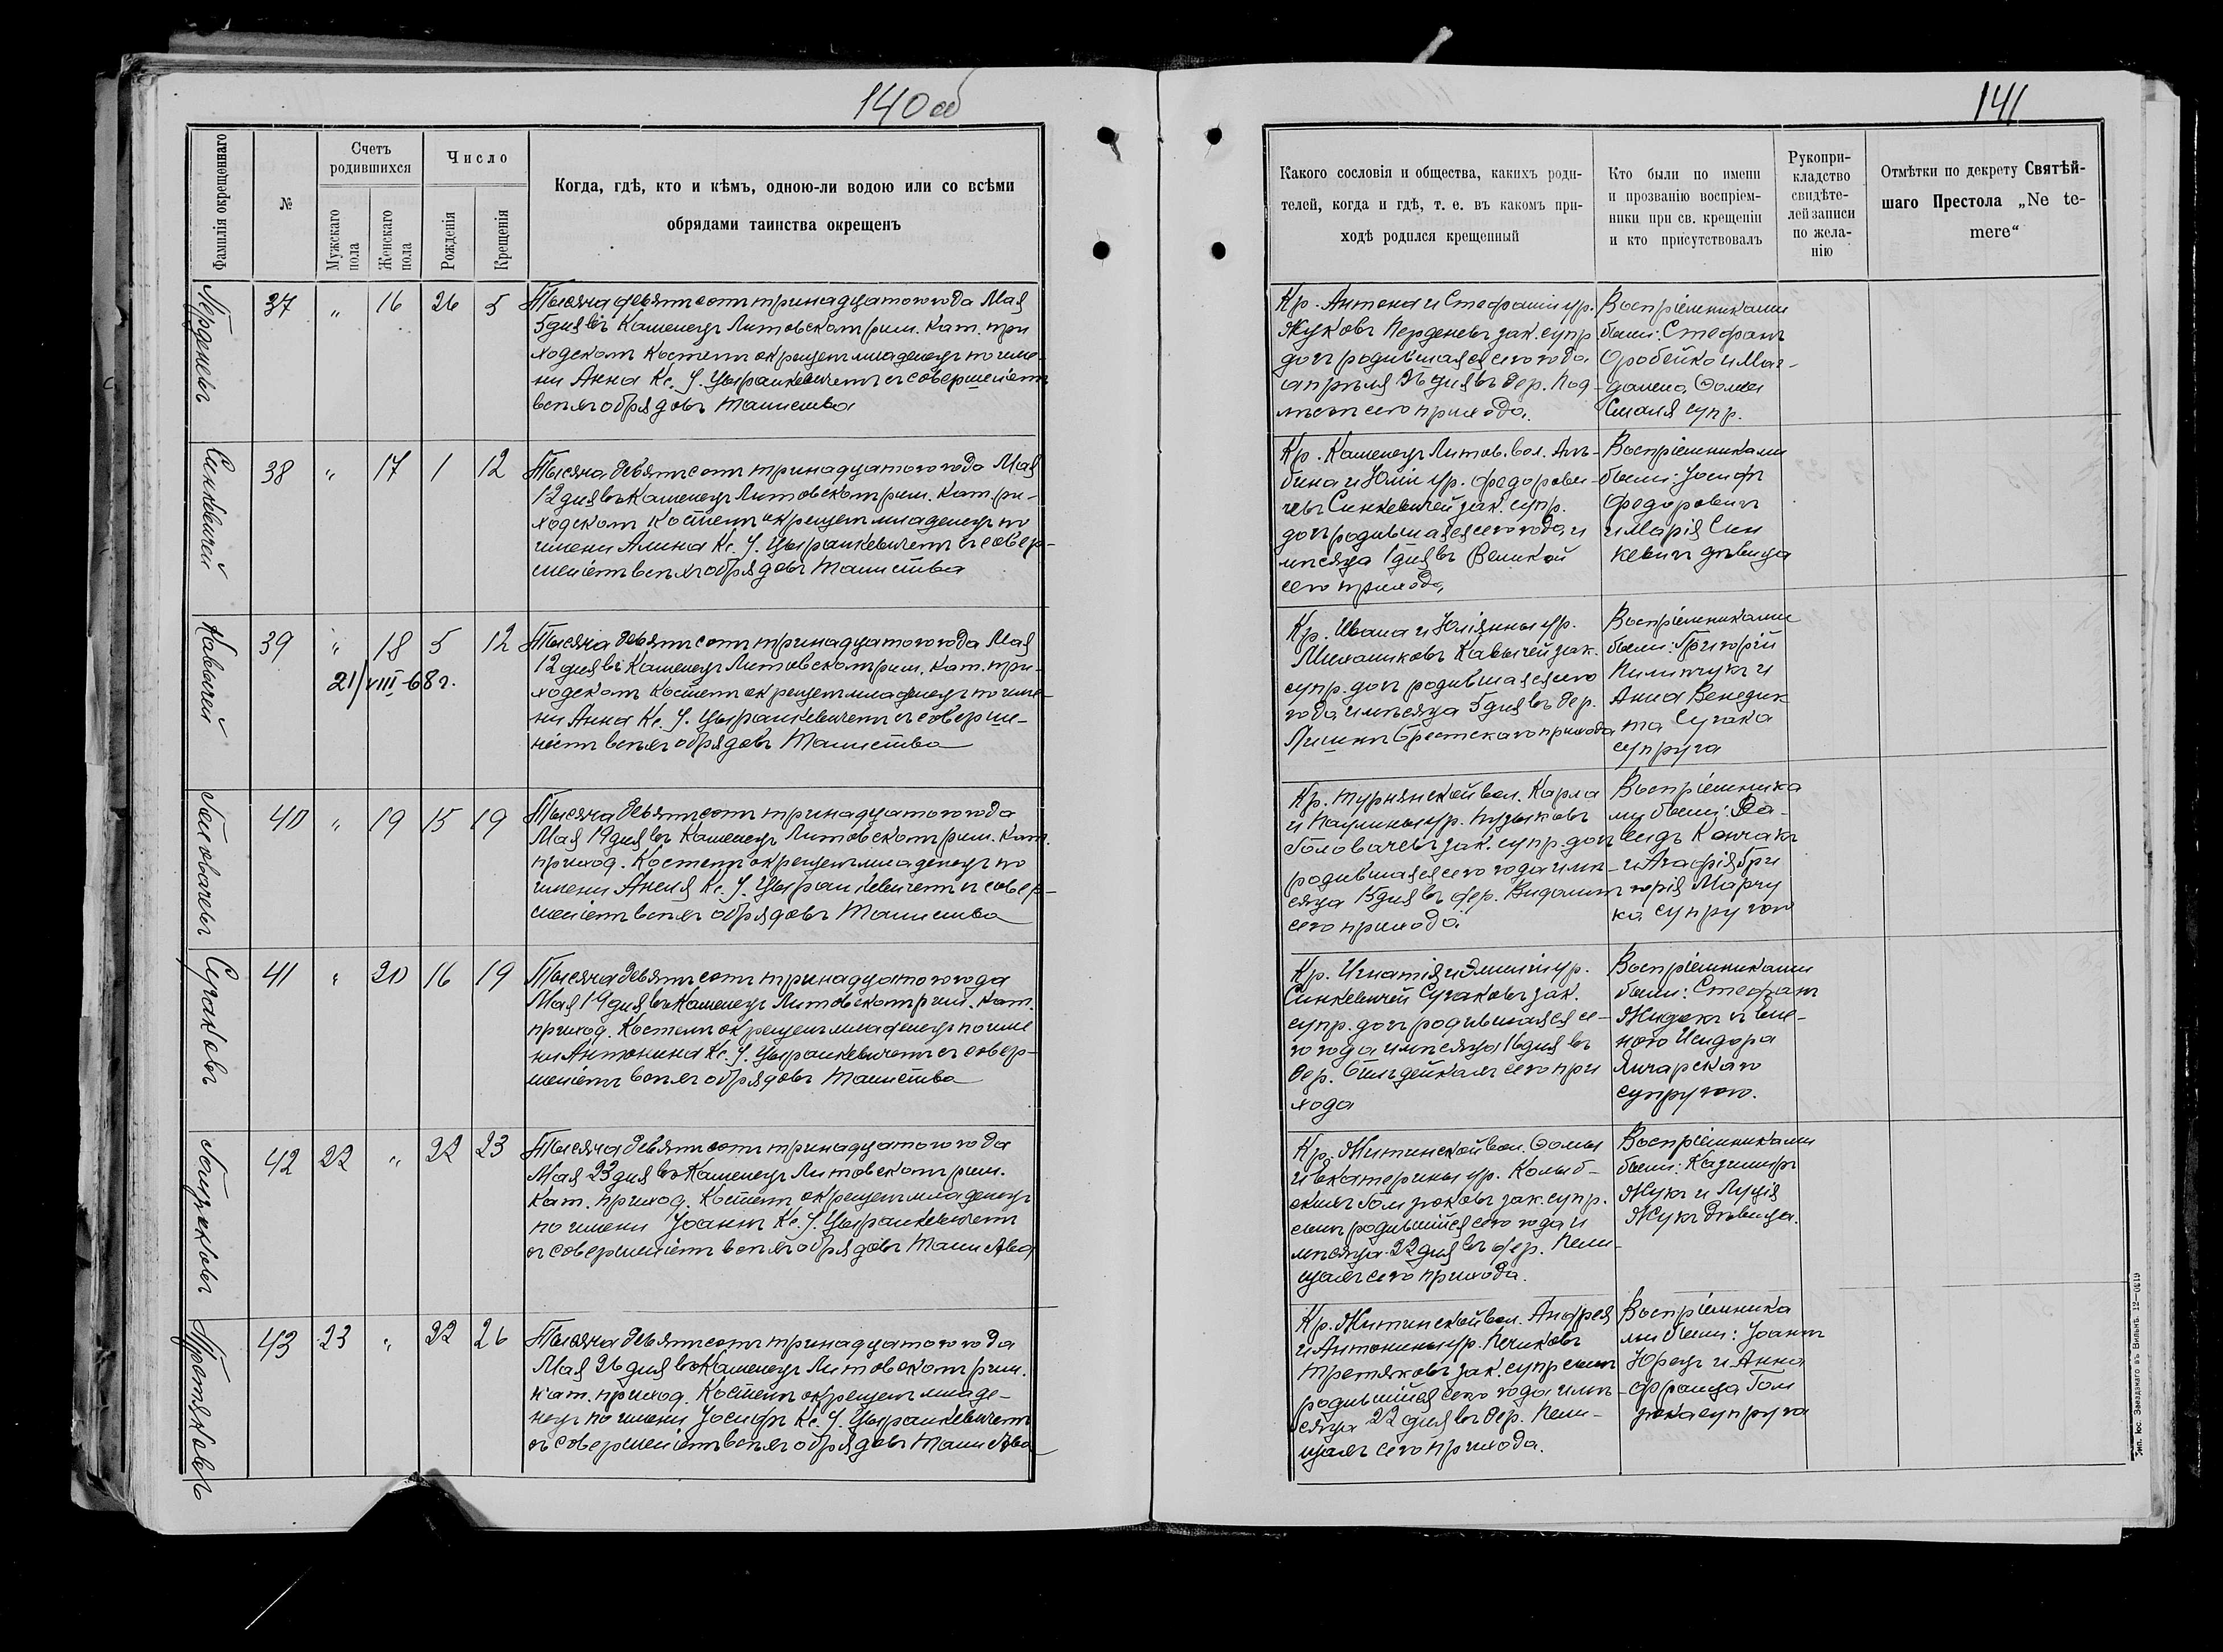 140 об
141
Фамилія окрещеннаго
№
Счетъ
родившихся
Мужскаго
пола
Женскаго
пола
Число
Рожденія
Крещенія
Когда, гдѣ, кто и кѣмъ, одною-ли водою или со всѣми
обрядами таинства окрещенъ
Какого сословія и общества, какихъ роди-
телей, когда и гдѣ, т. е. въ какомъ при-
ходѣ родился крещенный
Кто были по имени
и прозванію воспріем-
ники при св. крещеніи
и кто присутствовалъ
Рукопри-
кладство
свидѣте-
лей записи
по жела-
нію
Отмѣтки по декрету Святѣй-
шаго Престола „Ne te-
mere“
37 " 16 26 5
Тысяча девятьсотъ тринадцатого года Мая
5 дня въ Каменецъ Литовскомъ рим. кат. при
ходскомъ костелѣ окрещенъ младенецъ по име-
ни Анна Кс. У. Цыранкевичемъ съ совершеніемъ
всѣхъ обрядовъ таинства
Кр. Антона и Стефаніи ур.
Жуковъ зак. супр.
дочь родившаяся сего года
апрѣля 26 дня въ дер. Под-
сего прихода.
Воспріемниками
были: Стефанъ
Оробейко и Маг-
далена Фомы
супр.
Синкевичей
38 " 17 1 12
Тысяча девятьсотъ тринадцатого года Мая
12 дня въ Каменецъ Литовскомъ рим. кат. при-
ходскомъ костелѣ окрещенъ младенецъ по
имени Алина Кс. У. Цыранкевичемъ съ совер-
шеніемъ всѣхъ обрядовъ таинства
Кр. Каменецъ Литов. вол. Аль-
бина и Юліи ур. Федорови-
чъ Синкевичей зак. супр.
дочь родившаяся сего года и
мѣсяца 1 дня въ Великой
сего прихода,
Воспріемниками
были: Іосифъ
Федоровичъ
и Марія Син
кевичъ дѣвица
Кавычей
39 " 18 5 12
21/VIII-68 г.
Тысяча девятьсотъ тринадцатого года Мая
12 дня въ Каменецъ Литовскомъ рим. кат. при-
ходскомъ костелѣ окрещенъ младенецъ по име-
ни Анна Кс. У. Цыранкевичемъ съ соверше-
ніемъ всѣхъ обрядовъ таинства
Кр. Ивана и Юліянны ур.
Михалюковъ Кавычей зак.
супр. дочь родившаяся сего
года и мѣсяца 5 дня въ дер.
Брестскаго прихода
Воспріемниками
были: Григорій
Пилипчукъ и
Анна Венедик
та Сугака
супруга
Головачевъ
40 " 19 15 19
Тысяча девятьсотъ тринадцатого года
Мая 19 дня въ Каменецъ Литовскомъ рим. кат.
приход. костелѣ окрещенъ младенецъ по
имени Анеля Кс. У. Цыранкевичемъ съ совер-
шеніемъ всѣхъ обрядовъ таинства
Кр. Турнянской вол. Карла
и Паулины ур.
Головачевъ зак. супр. дочь
родившаяся сего года и мѣ-
сяца 15 дня въ дер. Видомлѣ
сего прихода
Воспріемника
ми были: Да-
видъ Кончакъ
и Агафія Гри
горія Марчу
ка супругою
Сугаковъ
41 " 20 16 19
Тысяча девятьсотъ тринадцатого года
Мая 19 дня въ Каменецъ Литовскомъ рим. кат.
приход. костелѣ окрещенъ младенецъ по име
ни Антонина Кс. У. Цыранкевичемъ съ совер-
шеніемъ всѣхъ обрядовъ таинства
Кр. Игнатія и Эмиліи ур.
Синкевичей Сугаковъ зак.
супр. дочь родившаяся се-
го года и мѣсяца 16 дня въ
дер. Бильдейкахъ сего при
хода
Воспріемниками
были: Стефанъ
Исидора
супругою.
42 22 " 22 23
Тысяча девятьсотъ тринадцатого года
Мая 23 дня въ Каменецъ Литовскомъ рим.
кат. приход. костелѣ окрещенъ младенецъ
по имени Іоаннъ Кс. У. Цыранкевичемъ
съ совершеніемъ всѣхъ обрядовъ таинства
Кр. Житинской вол. Фомы
и Екатерины ур. Колыб-
скихъ Гольцюковъ зак. супр.
сынъ родившійся сего года и
мѣсяца 22 дня въ дер. Пели-
щахъ сего прихода.
Воспріемниками
были: Казимиръ
Жукъ и Луція
Жукъ дѣвица.
Третяковъ
43 23 " 22 26
Тысяча девятьсотъ тринадцатого года
Мая 26 дня въ Каменецъ Литовскомъ рим.
кат. приход. костелѣ окрещенъ младе-
нецъ по имени Іосифъ Кс. У. Цыранкевичемъ
съ совершеніемъ всѣхъ обрядовъ таинства
Кр. Житинской вол. Андрея
и Антонины ур.
Третяковъ зак. супр. сынъ
родившійся сего года и мѣ-
сяца 22 дня въ дер. Пели-
щахъ сего прихода.
Воспріемника
ми были: Іоаннъ
Юрецъ и Анна
Франца Голь
цюка супруга
Тип. Іос. Завадзкаго въ Вильнѣ. 12—0619